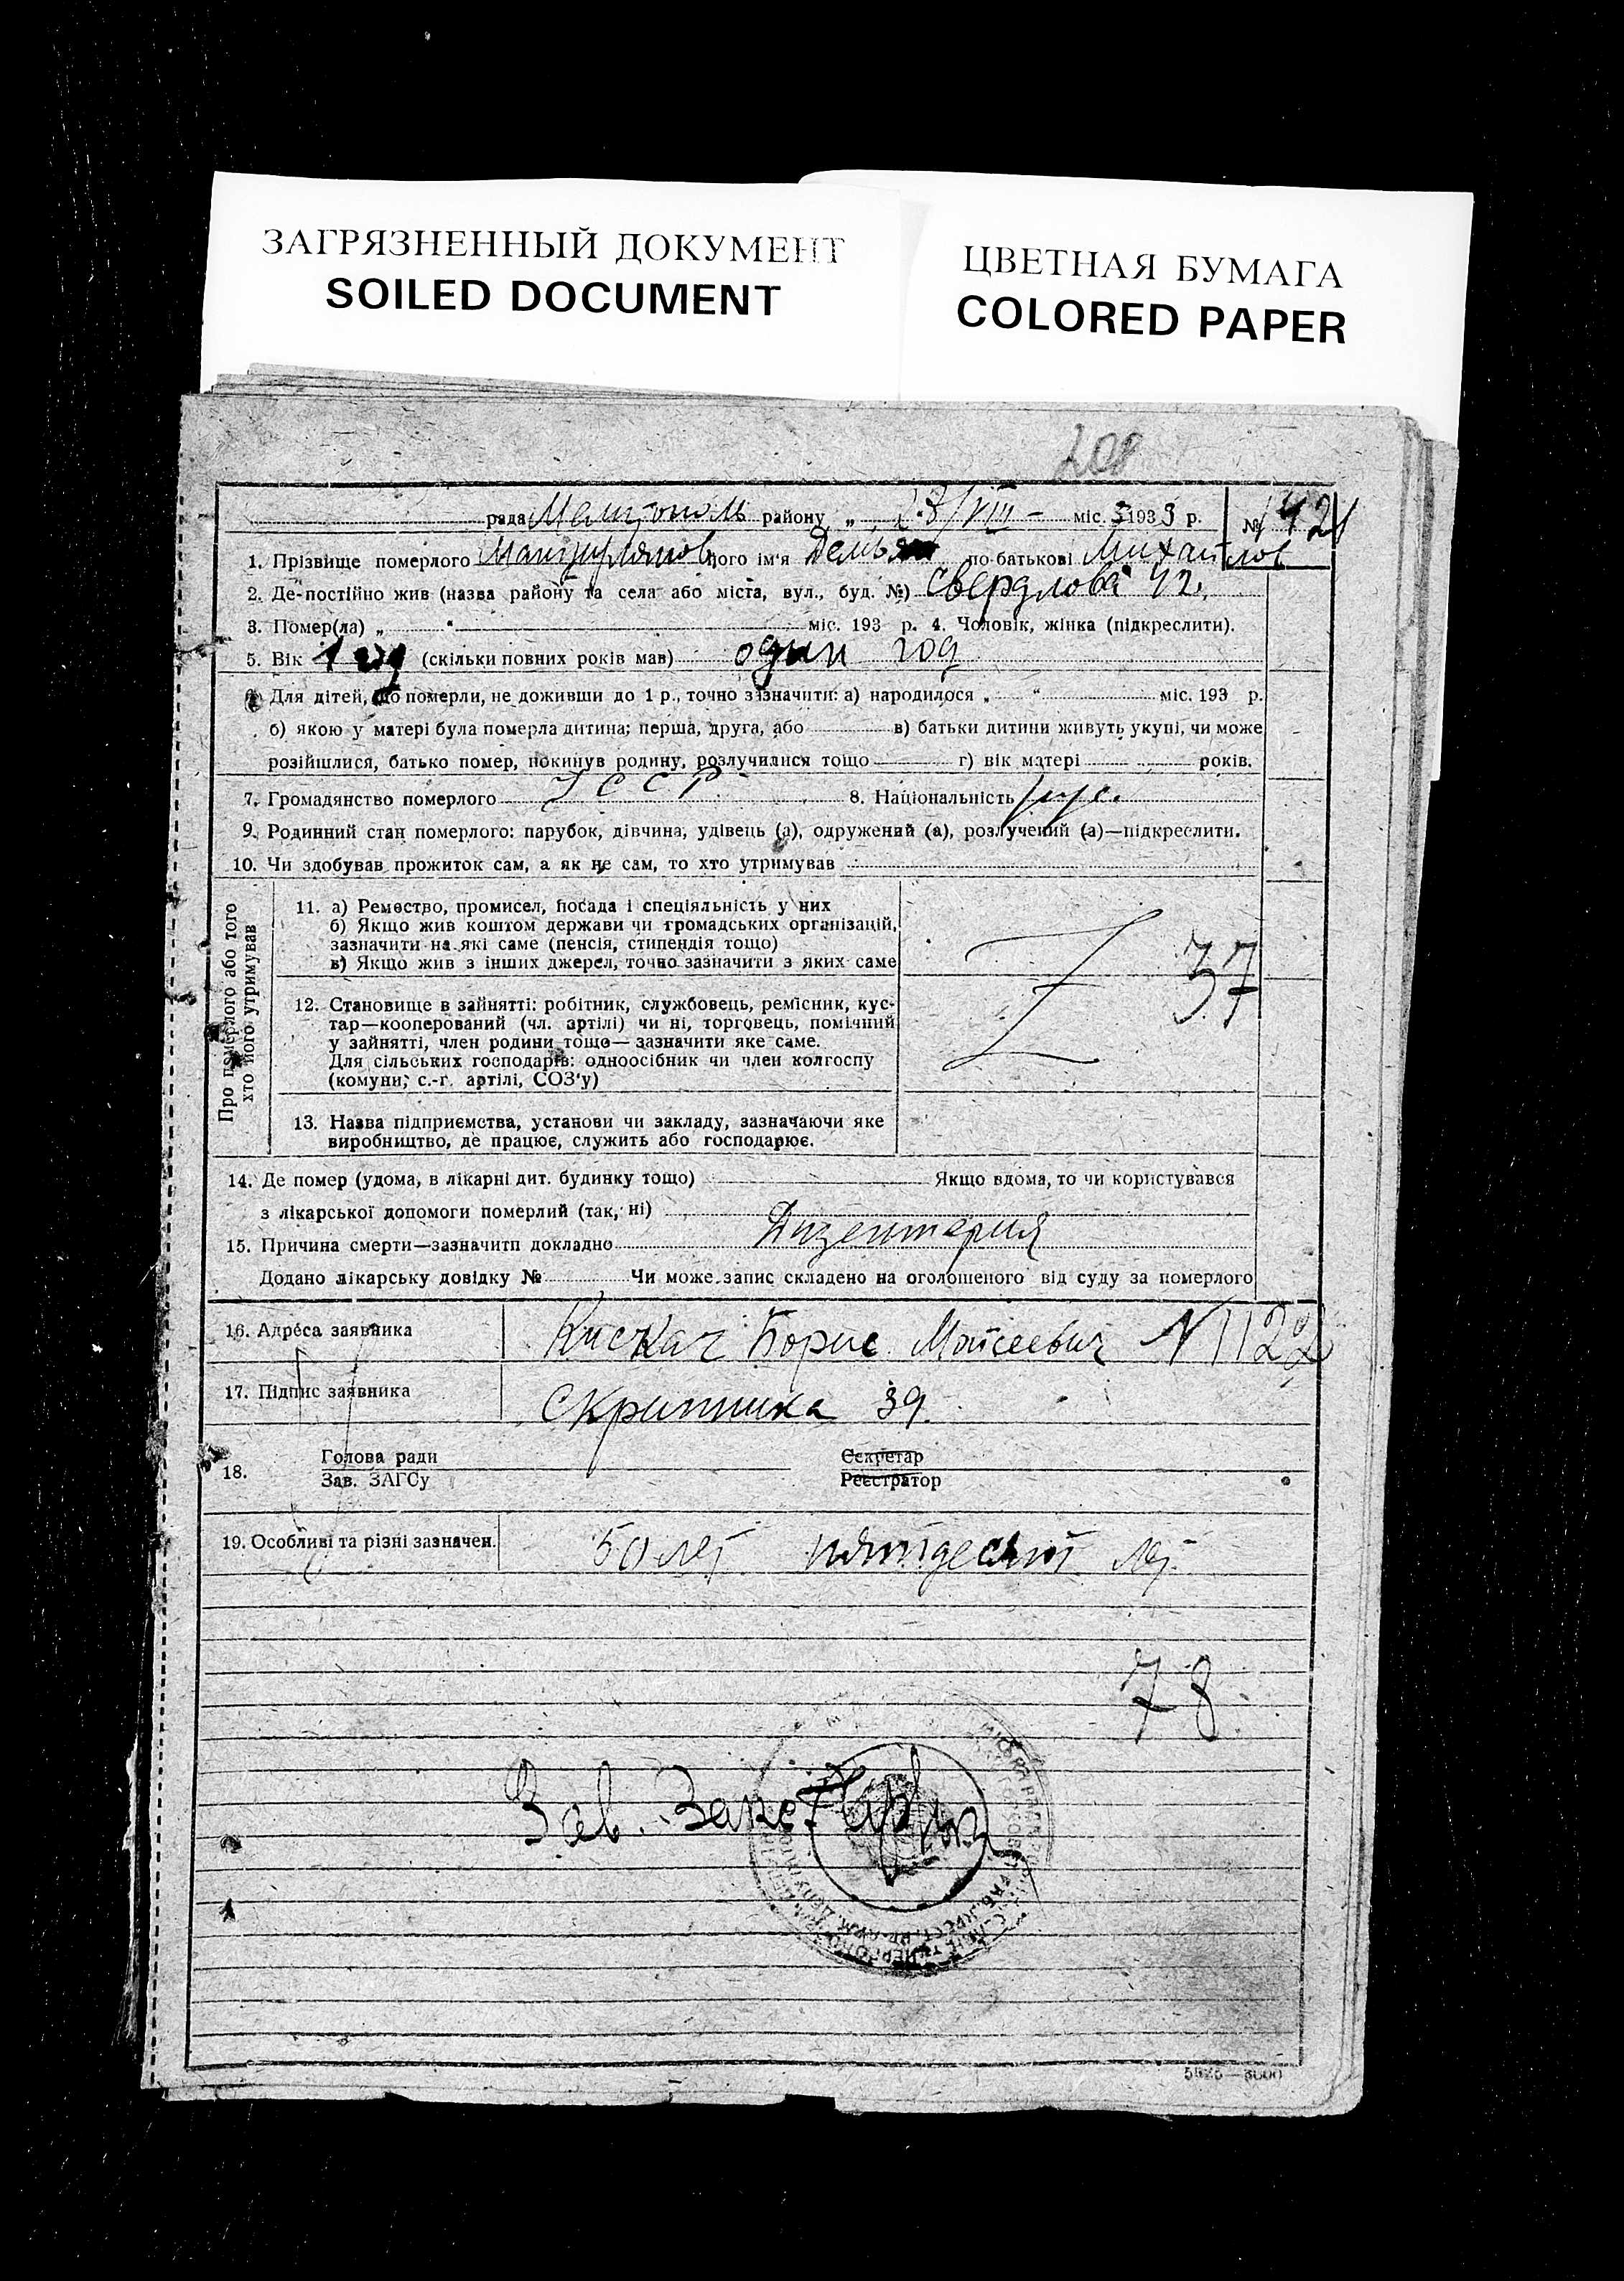 ЗАГРЯЗНЕННЫЙ ДОКУМЕНТ
SOILED DOCUMENT
ЦВЕТНАЯ БУМАГА
COLORED PAPER
208
рада Мелітополь району „ 28/VIII - міс. 1933 р. № 1421
1. Прізвище померлого його ім'я Демьян по-батькові Михайлов
2. Де-постійно жив (назва району та села або міста, вул., буд. №) Свердлова 42.
3. Помер(ла) „ “ міс. 193 р. 4. Чоловік, жінка (підкреслити).
5. Вік 1 год (скільки повних років мав) один год
6. Для дітей, що померли, не доживши до 1 р., точно зазначити: а) народилося „ “ міс. 193 р.
б) якою у матері була померла дитина; перша, друга, або в) батьки дитини живуть укупі, чи може
розійшлися, батько помер, покинув родину, розлучилися тощо г) вік матері років.
7. Громадянство померлого УССР 8. Національність рус.
9. Родинний стан померлого: парубок, дівчина, удівець (а), одружений (а), розлучений (а)—підкреслити.
10. Чи здобував прожиток сам, а як не сам, то хто утримував
Про померлого або того
хто його утримував
11. а) Ремество, промисел, посада і спеціяльність у них
б) Якщо жив коштом держави чи громадських організацій,
зазначити на які саме (пенсія, стипендія тощо)
в) Якщо жив з інших джерел, точно зазначити з яких саме
37
12. Становище в зайнятті: робітник, службовець, ремісник, кус-
тар—кооперований (чл. артілі) чи ні, торговець, помічний
у зайнятті, член родини тощо— зазначити яке саме.
Для сільських господарів: одноосібник чи член колгоспу
(комуни, с.-г. артілі, СОЗ'у)
13. Назва підприємства, установи чи закладу, зазначаючи яке
виробництво, де працює, служить або господарює.
14. Де помер (удома, в лікарні дит. будинку тощо) Якщо вдома, то чи користувався
з лікарської допомоги померлий (так, ні)
15. Причина смерти—зазначити докладно Дизентерия
Додано лікарську довідку № Чи може запис складено на оголошеного від суду за померлого
16. Адреса заявника Кискач Борис Моисеевич N 1122
17. Підпис заявника Скрипника 39.
18. Голова ради Секретар
Зав. ЗАГСу Реєстратор
19. Особливі та різні зазначен. 50 лет пятдесят лет
78
Зав. Загс
5525—3000